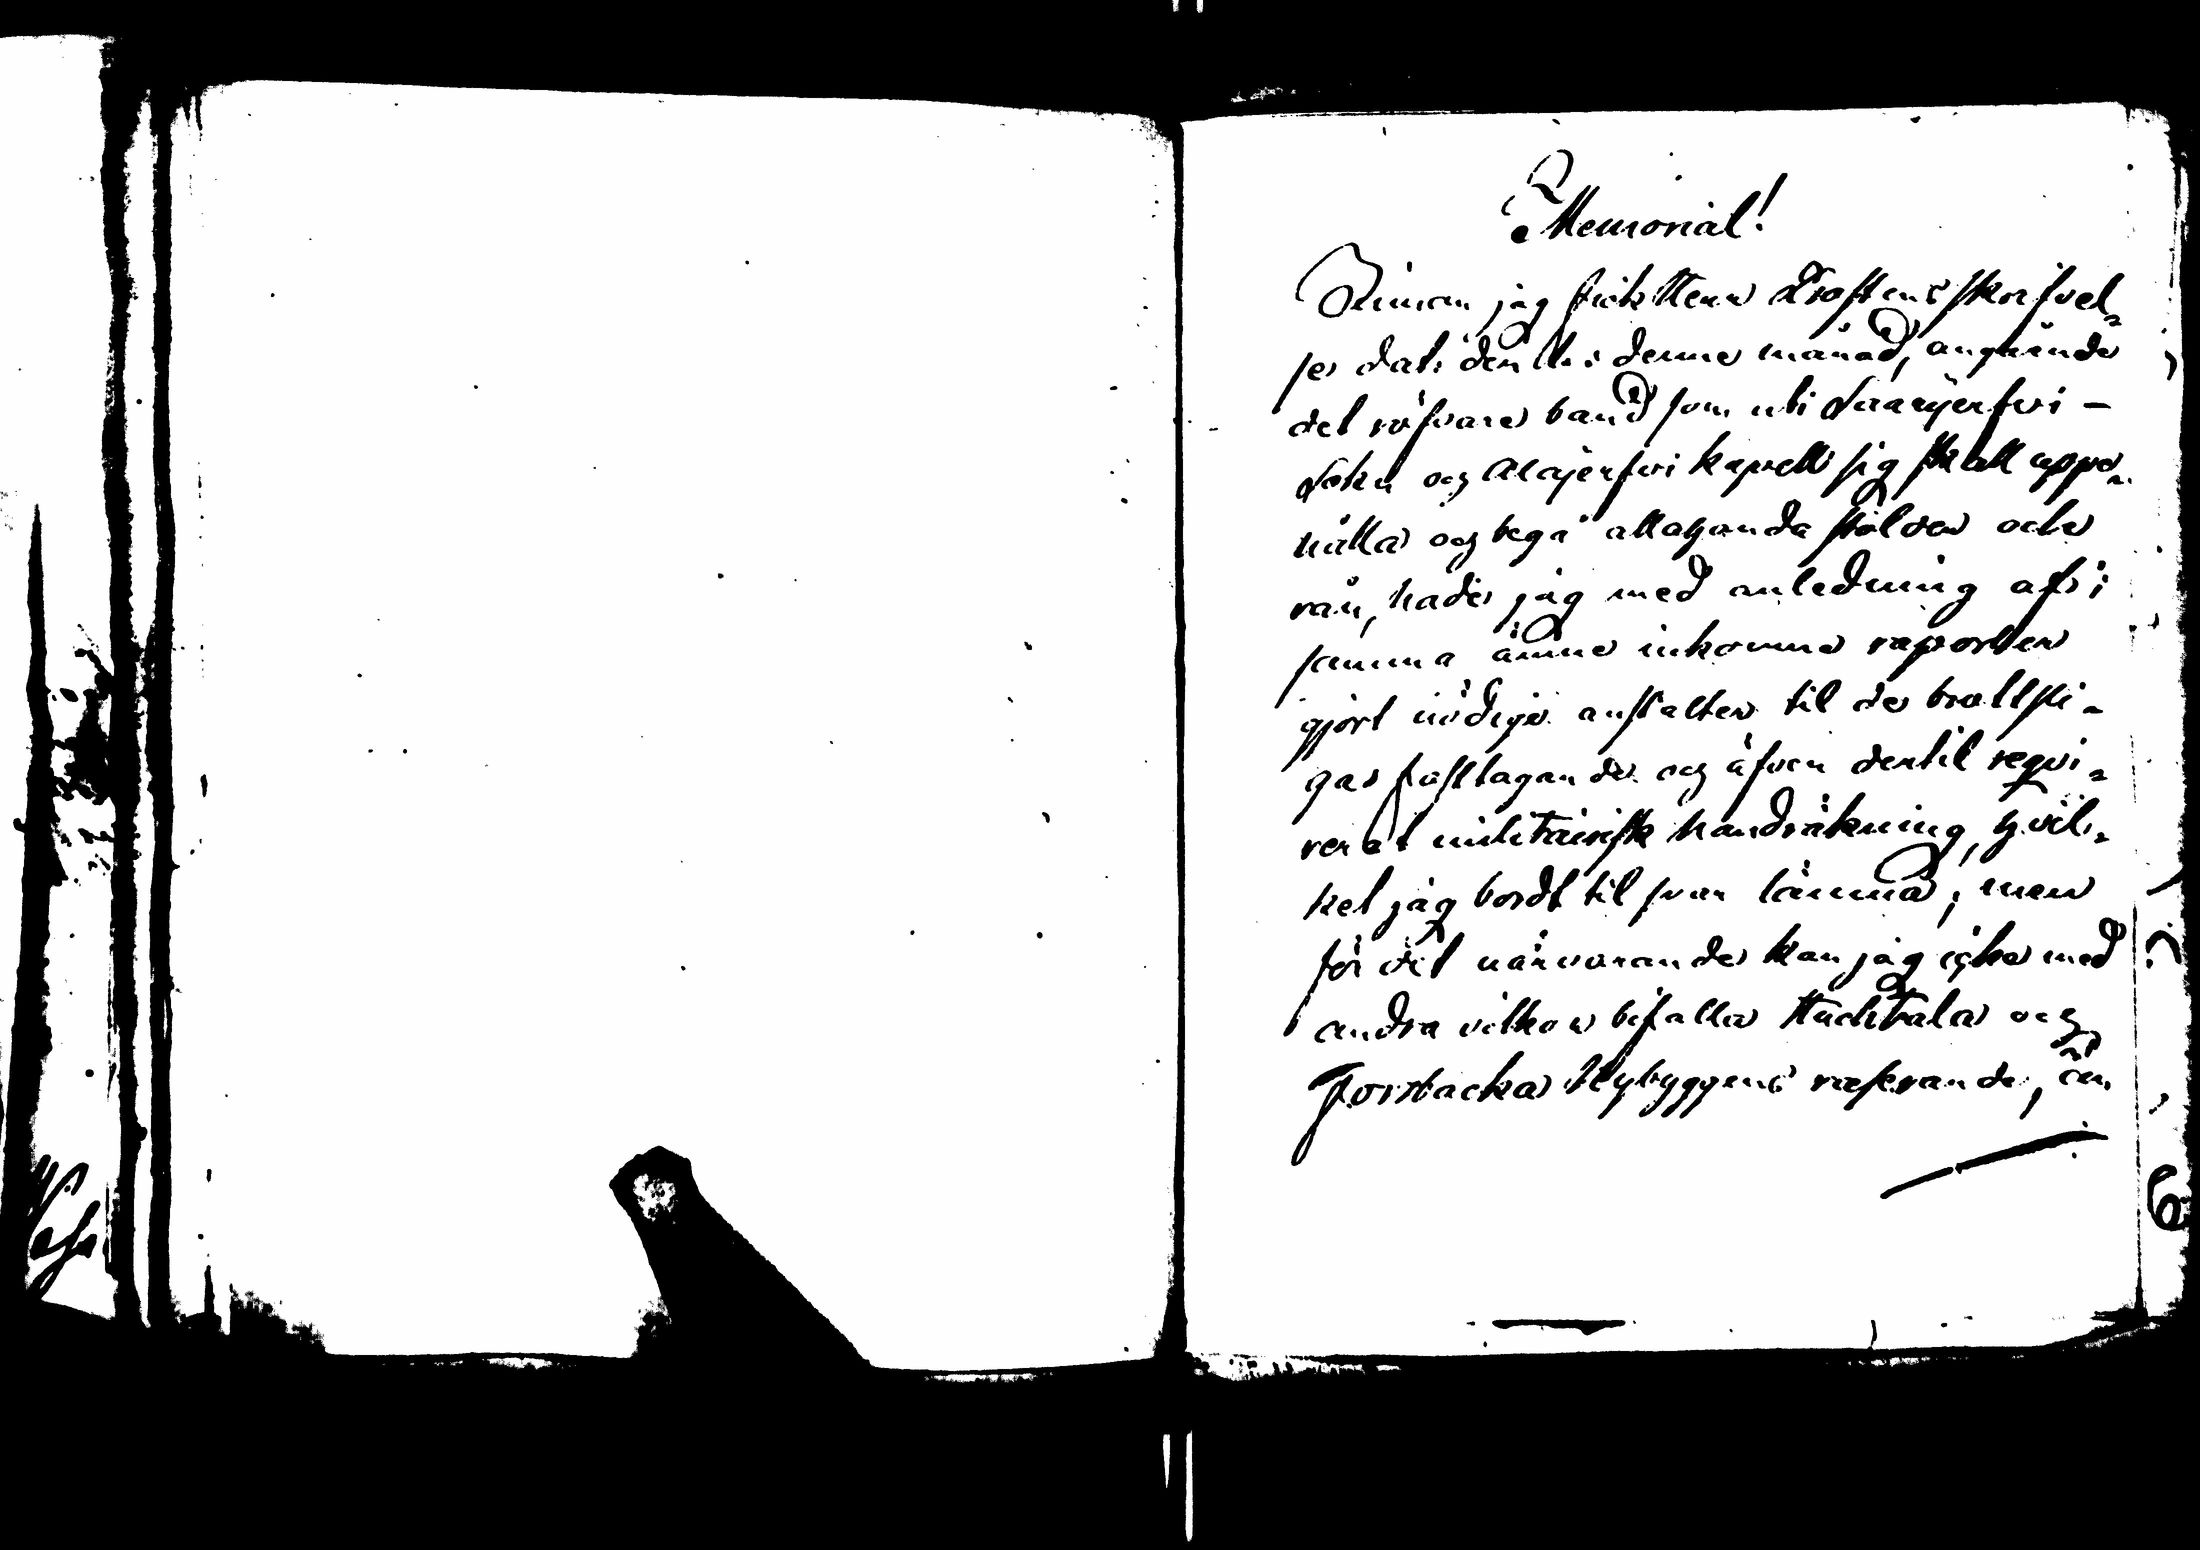 Memorial!
Innan jag fick Herr Probstens skrifvel-
se dat: den 11: denne månad, angående
det röfvare band som uti Saarijerfvi-
Sokn och Alajerfvi kapell sig skall uppe-
hålla och begå allahanda stölder och
rån, hade jag med anledning af i
samma ämne inkomne raporter
gjort nödige anstalter til de brottsli-
gas fasttagande och äfven dertil reqvi-
rerat militairisk handräkning, hvil-
ket jag bordt til svar lämna; men
för det närvarande kan jag icke med
andra vilkor bifalla Huchtala och
Forsbacka Nybyggens ræserande, än